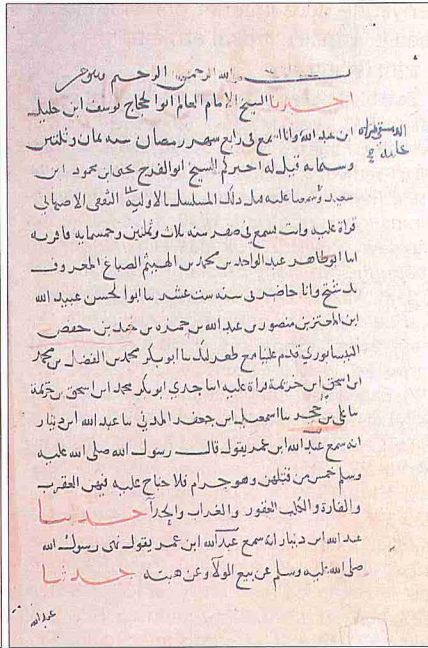 بسم الله الرحمن الرحيم
اخبرنا الشيخ الامام العالم ابو الحجاج يوسف ابن خليل
ابن عبد الله وانا اسمع في رابع شهر رمضان سنه ثمان وثلثين
وستمايه قيل له اخبركم الشيخ ابو الفرج يحيى ابن محمود ابن
سعيد وسمعنا عليه قبل ذلك المسلسل بالاوليه الثقفي الاصبهاني
قراة عليه وانت تسمع في صفر سنه ثلاث وثمنين وخمسمايه فاقر به
انا ابو طاهر عبد الواحد بن محمد بن الهيثم الصباغ المعروف
وانا حاضر في سنه ست عشر نا ابو الحسن عبيد الله
ابن المعتز بن منصور بن عبد الله بن حمزه بن حفص
النيسابوري قدم علينا مع نا ابو بكر محمد بن الفضل بن محمد
ابن اسحق ابن خزيمة قراة عليه انا جدي ابو بكر محمد ابن اسحق بن خزيمة
نا علي بن حجر نا اسمعيل ابن جعفر المدني نا عبد الله ابن دينار
انه سمع عبد الله ابن عمر يقول قال رسول الله صلى الله عليه
وسلم خمس من قتلهن وهو حرام فلا جناح عليه فيهن العقرب
والفارة والكلب العقور والغراب والحدا حدثنا
عبد الله ابن دينار انه سمع عبد الله ابن عمر يقول نهى رسول الله
صلى الله عليه وسلم عن بيع الولاء وعن هبته حدثنا
عبد الله